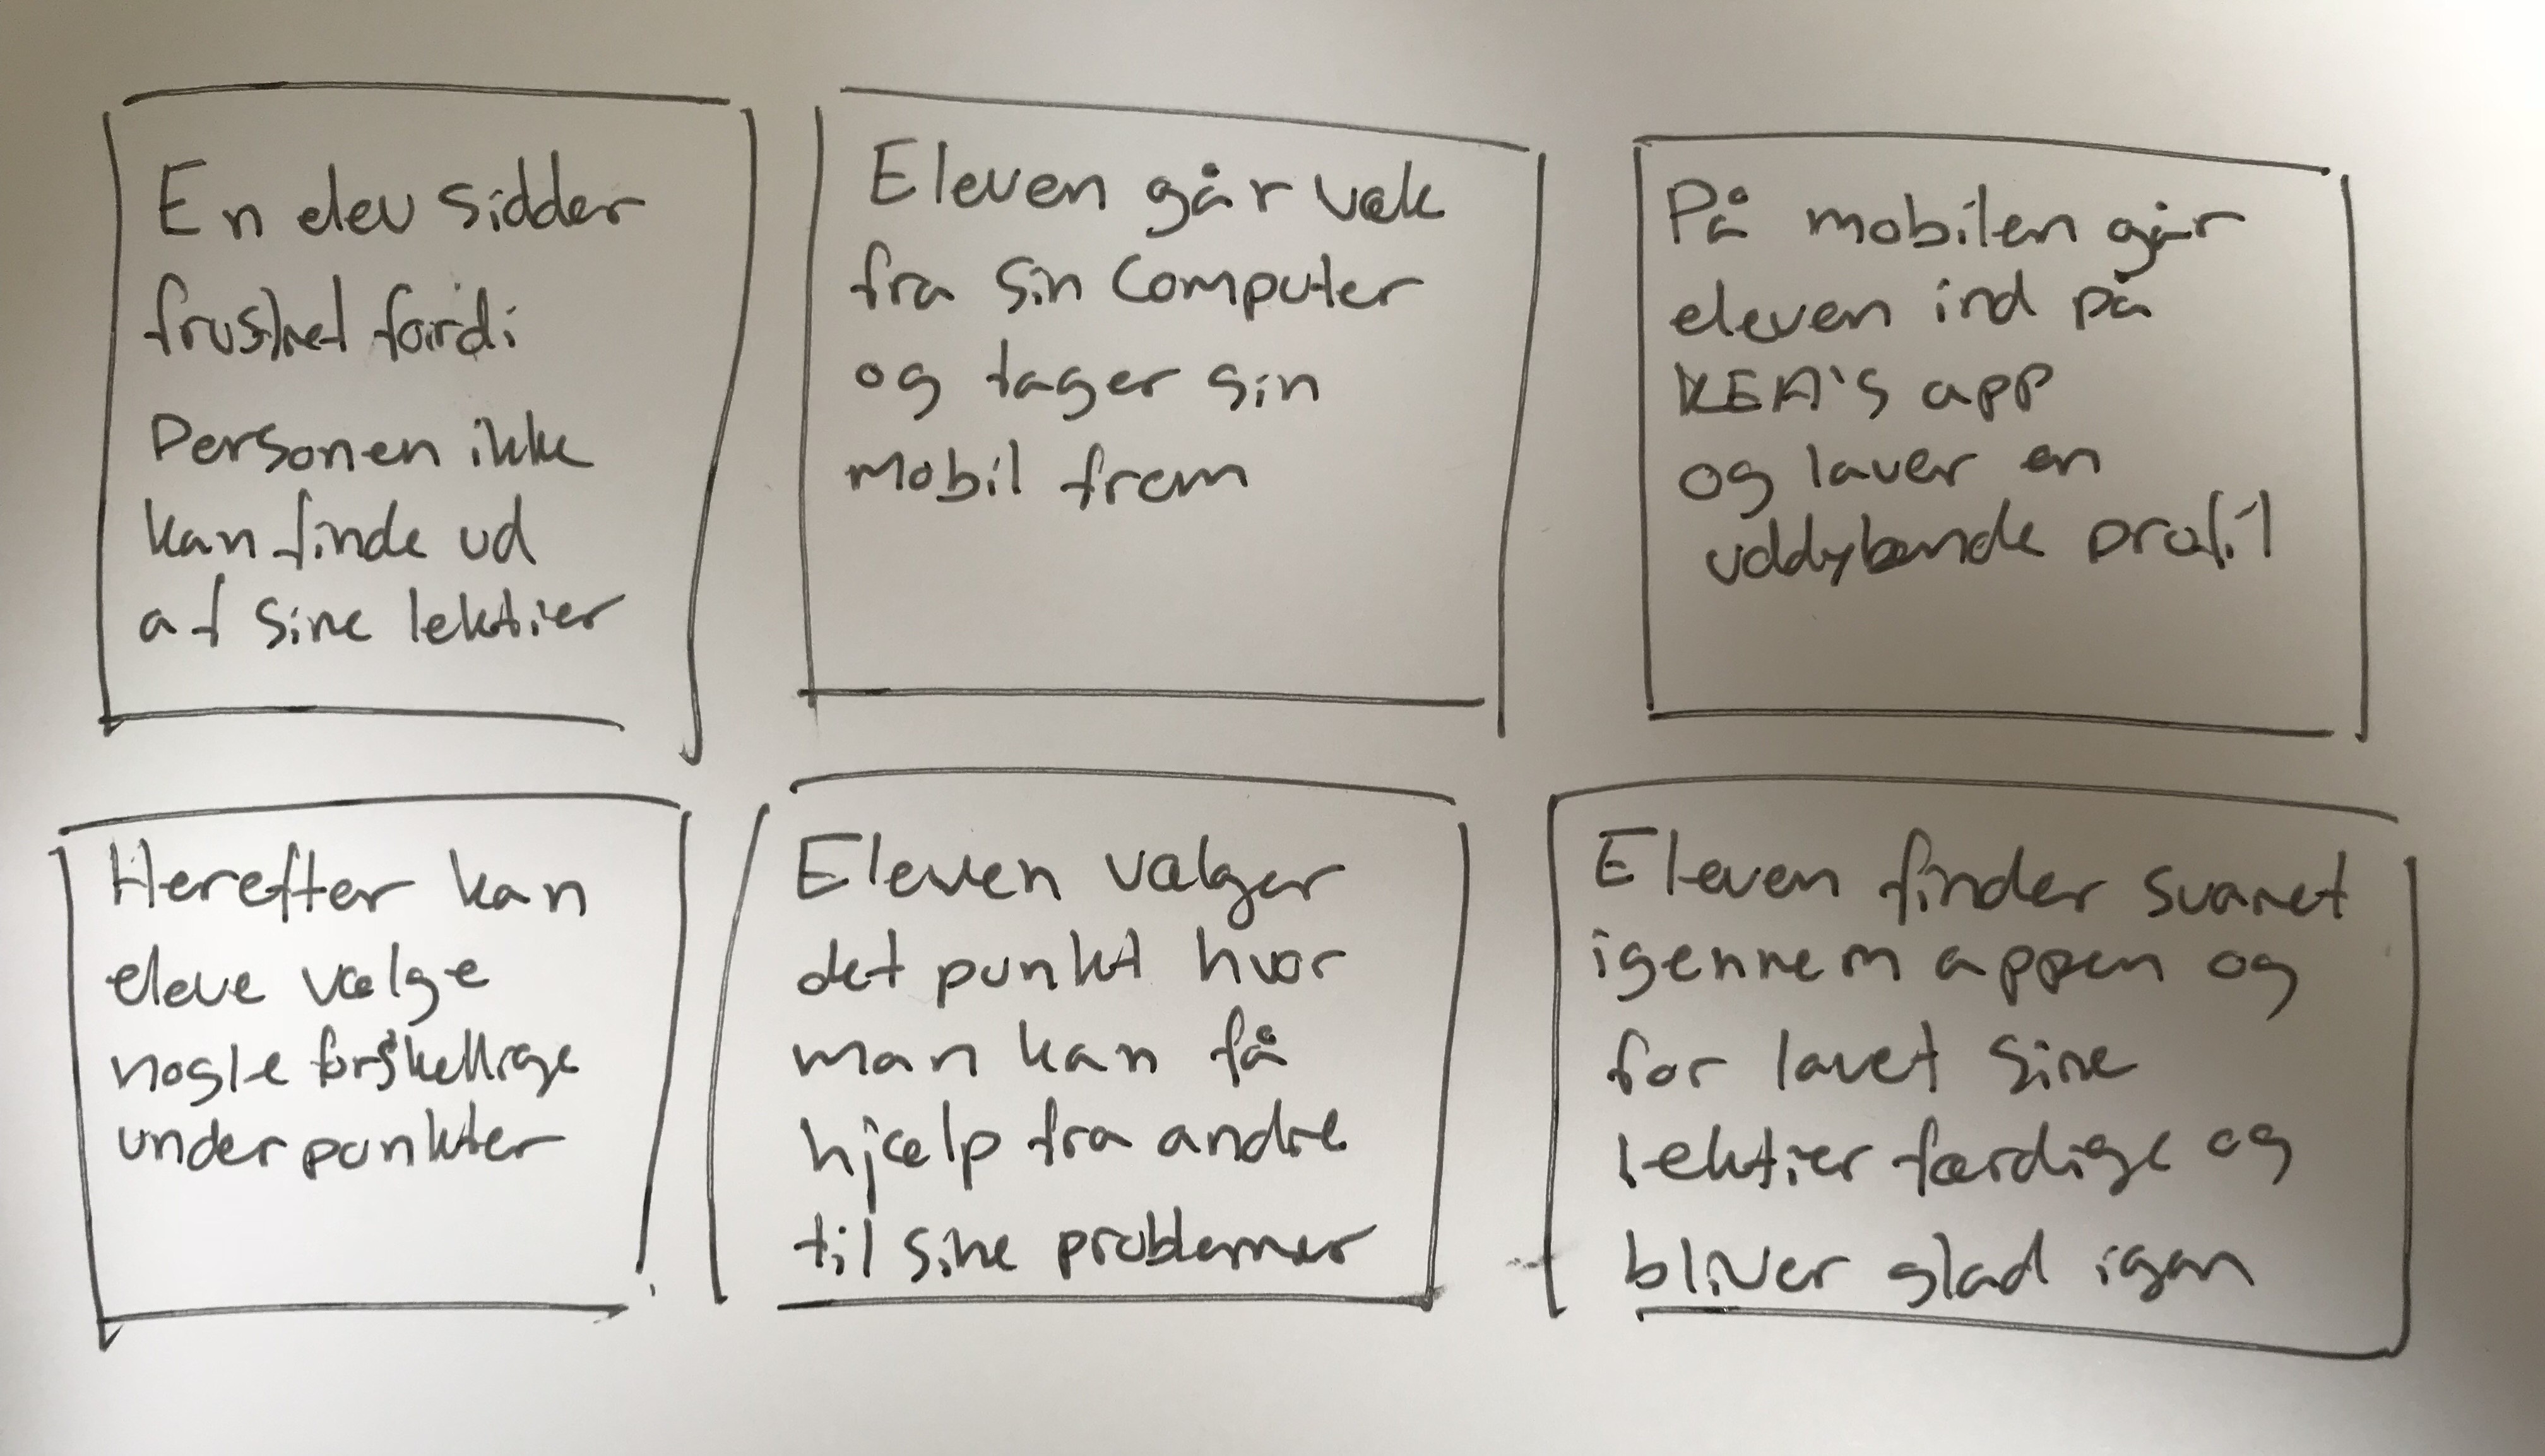 En elev sidder
frustret fordi
Personen ikke
kan finde ud
af sine lektier
Eleven går væk
fra sin Computer
og tager sin
mobil frem
På mobilen går
eleven ind på
KEA's app
og laver en
uddybende profil
Herefter kan
eleve vælge
nogle forskellige
underpunkter
Eleven vælger
det punkt hvor
man kan få
hjælp fra andre
til sine problemer
Eleven finder svaret
igennem appen og
for lavet sine
lektier færdige og
bliver glad igen